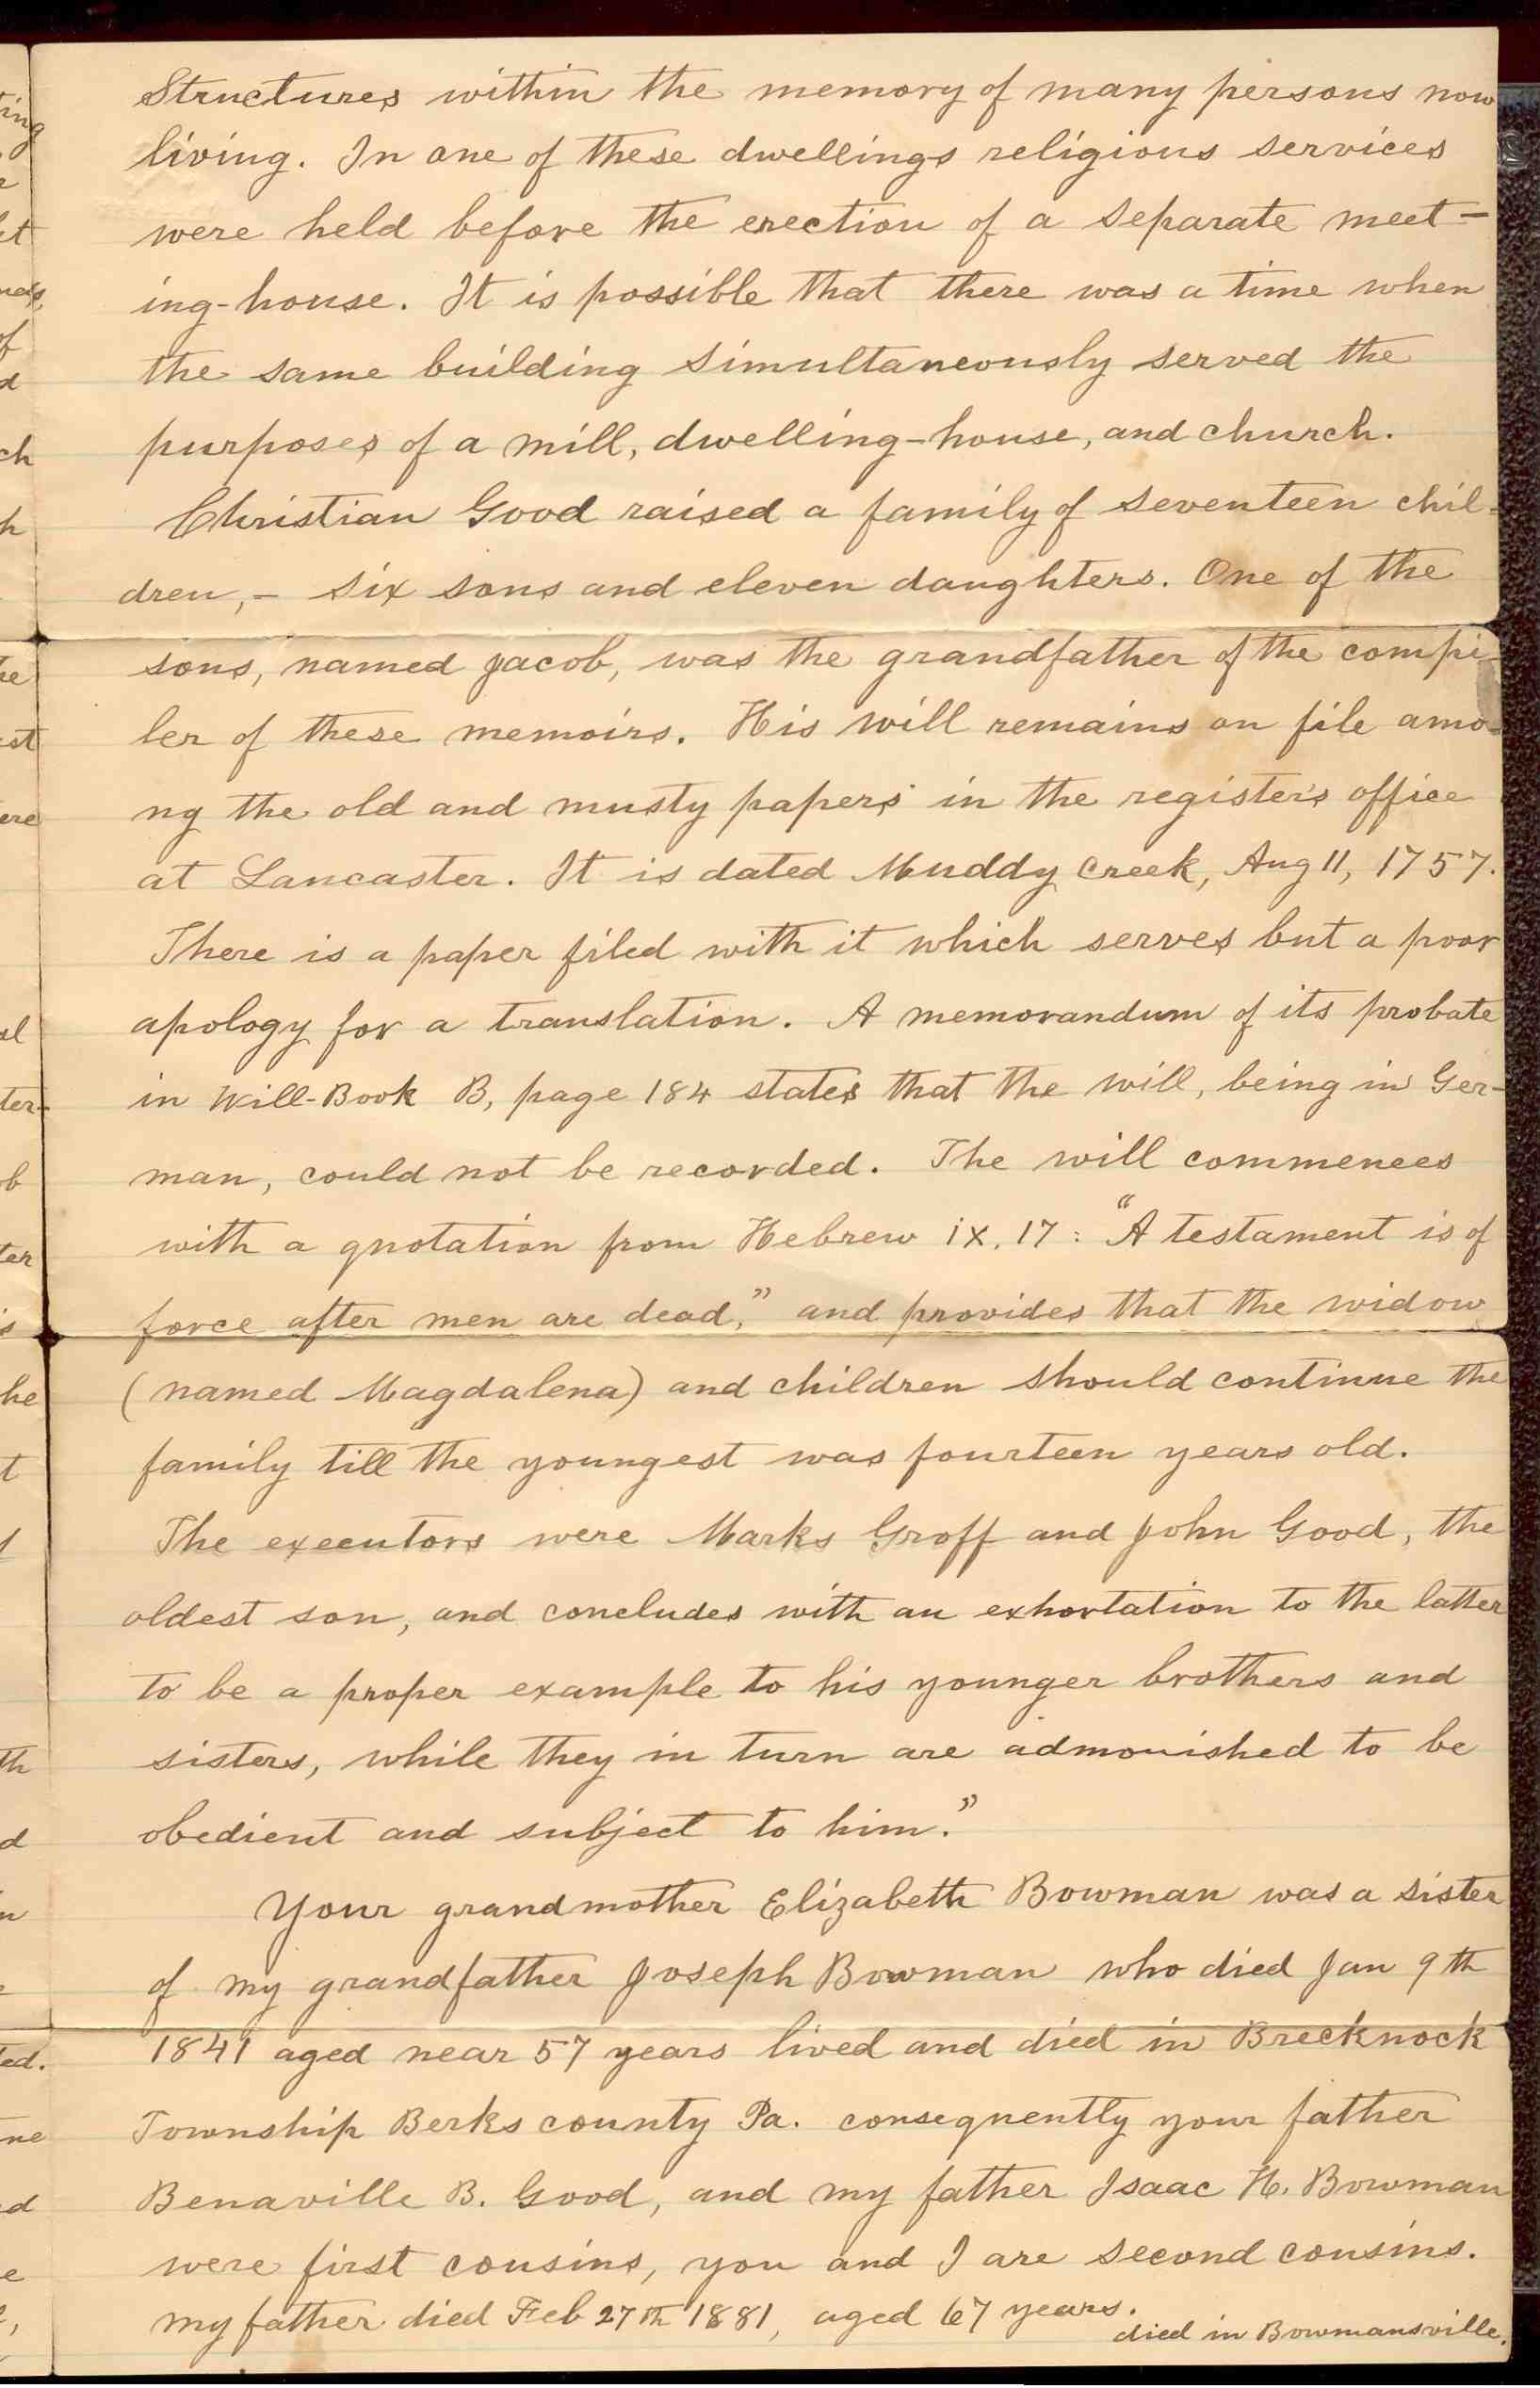 Structures within the memory of many persons now
living. In one of these dwellings religious services
were held before the erection of a separate meet-
ing-house. It is possible that there was a time when
the same building simultaneously served the
purposes of a mill, dwelling-house, and church.
Christian Good raised a family of seventeen chil-
dren,- six sons and eleven daughters. One of the
sons, named Jacob, was the grandfather of the compi-
ler of these memoirs. His will remains on file amo-
ng the old and musty papers in the register's office
at Lancaster. It is dated Muddy Creek, Aug 11, 1757.
There is a paper filed with it which serves but a poor
apology for a translation. A memorandum of its probate
in Will-Book B, page 184 states that the will, being in Ger-
man, could not be recorded. The will commences
with a quotation from Hebrew ix. 17: "A testament is of
force after men are dead," and provides that the widow
(named Magdalena) and children should continue the
family till the youngest was fourteen years old.
The executors were Marks Groff and John Good, the
oldest son, and concludes with an exhortation to the latter
to be a proper example to his younger brothers and
sisters, while they in turn are admonished to be
obedient and subject to him."
Your grandmother Elizabeth Bowman was a sister
of my grandfather Joseph Bowman who died Jan 9th
1841 aged near 57 years lived and died in Brecknock
Township Berks county Pa. consequently your father
Benaville B. Good, and my father Isaac H. Bowman
were first cousins, you and I are second cousins.
my father died Feb 27th 1881, aged 67 years.
died in Bowmansville.